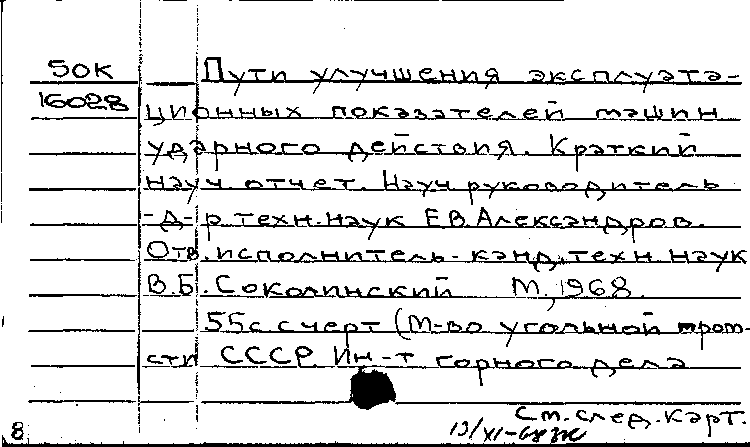 50К Пути улучшения эксплуата-
16028 ционных показателей машин
ударного действия. Краткий
науч. отчет. Науч. руководитель
-д-р техн. наук Е.В. Александров.
Отв. исполнитель - канд. техн. наук
В.Б. Соколинский М., 1968.
55с. с черт. (М-во угольной пром-
сти СССР. Ин-т горного дела
См. след. карт.
8 13/XI-68